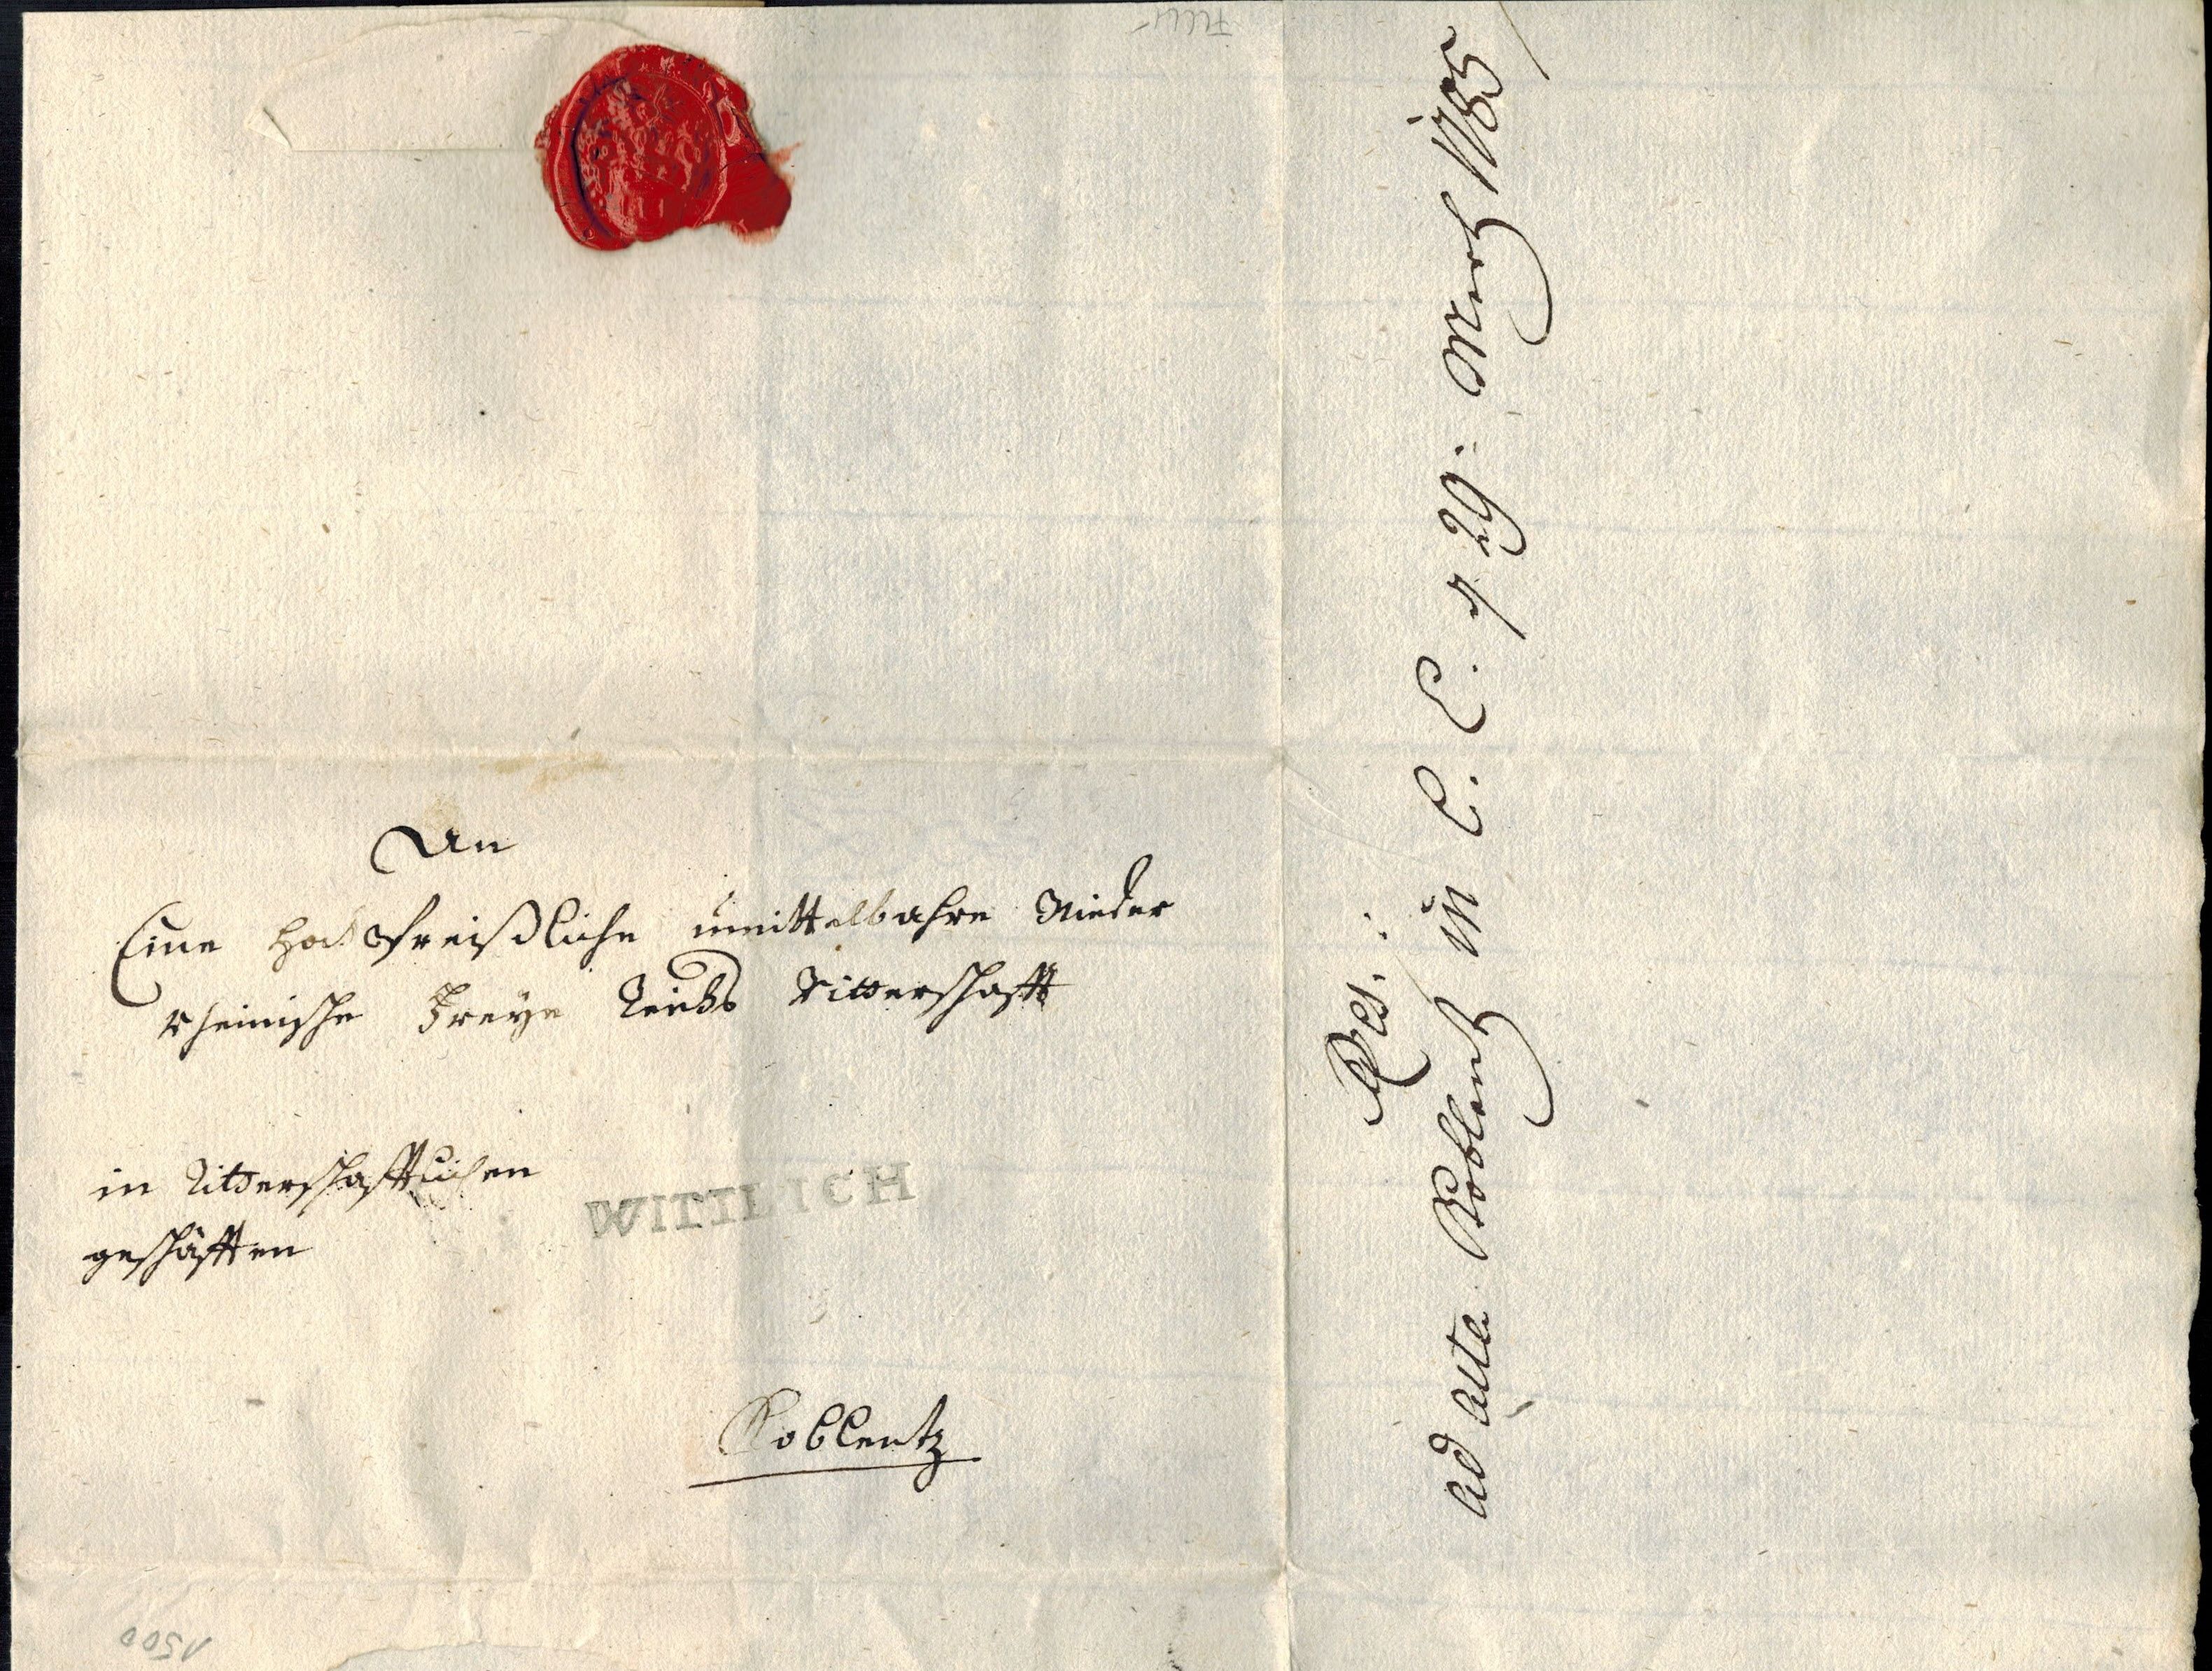 An
Eine hochpreißliche unmittelbahre Nieder
rheinische Freye Reichs Ritterschafft
in Ritterschafftlichen
geschäfften
WITTLICH
Coblentz
Res.:
ad acta Coblentz in C. C. 29. Mertz 1785
1500